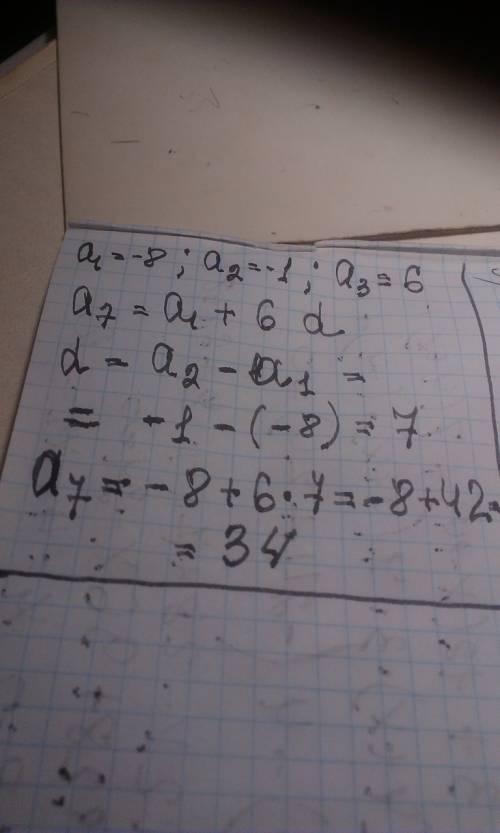 a₁=-8; a₂=-1; a₃=6
a₇ = a₁ + 6 d
d = a₂ - a₁ =
= -1 - (-8) = 7
a₇ = -8+6·7=-8+42=
= 34